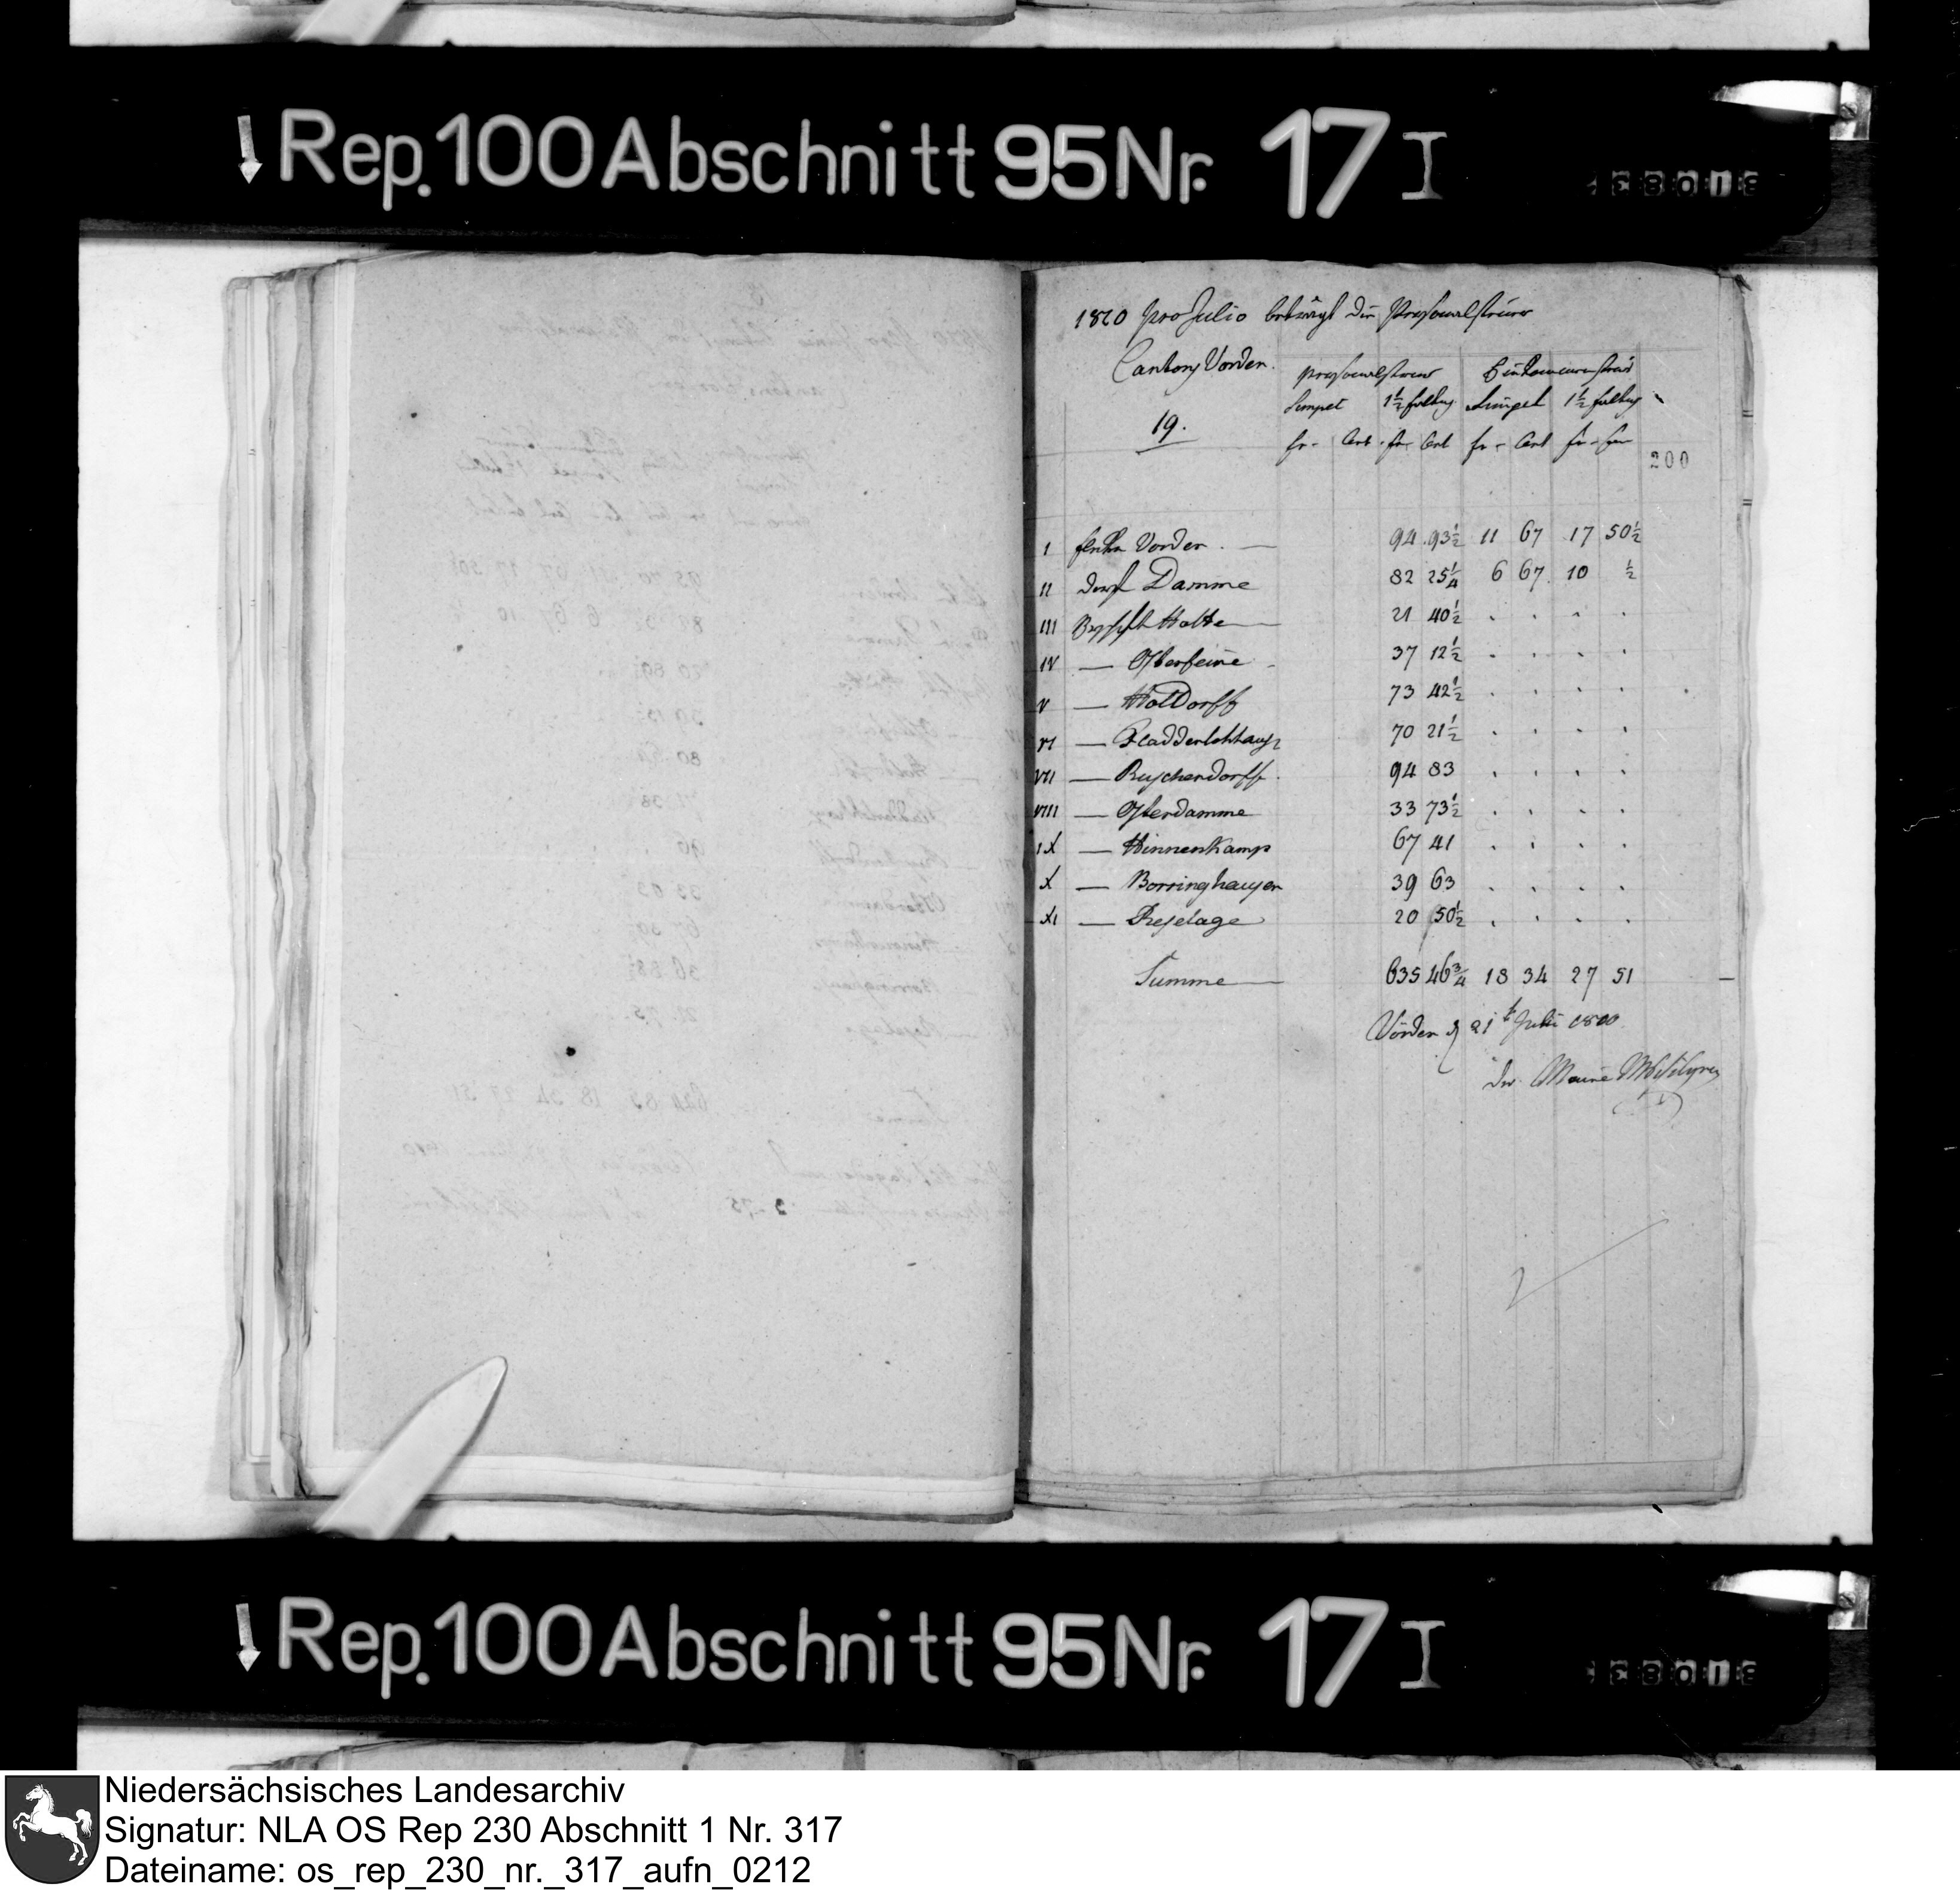 Rep. 100 Abschnitt 95 Nr. 17 I
1810 pro Julio beträgt die Personalsteuer
Cantons Vörden.
19.
Personalsteuer Einkommensteuer
Simpel 1½ faltig Simpel 1½ faltig
fr. Cent. fr. Cent fr. Cent fr.
200
I Vörden. — 94 93½ 11 67 17 50½
II Dorf Damme 82 25¼ 6 67 10 ½
III Holte — 21 40½ . . . .
IV — Osterfeine 37 12½ . . . .
V — Holdorff 73 42½ . . . .
VI — Fladderlohhaus 70 21½ . . . .
VII — Ruschendorff. 94 83 . . . .
VIII — Osterdamme 33 73½ . . . .
IX — Hinnenkamp 67 41 . . . .
X — Borringhausen 39 63 . . . .
XI — Reselage 20 50½ . . . .
Summe — 635 46¾ 18 34 27 51
Vörden d 21t Julii 1810
der Maire
Rep. 100 Abschnitt 95 Nr. 17 I
Niedersächsisches Landesarchiv
Signatur: NLA OS Rep 230 Abschnitt 1 Nr. 317
Dateiname: os_rep_230_nr._317_aufn_0212